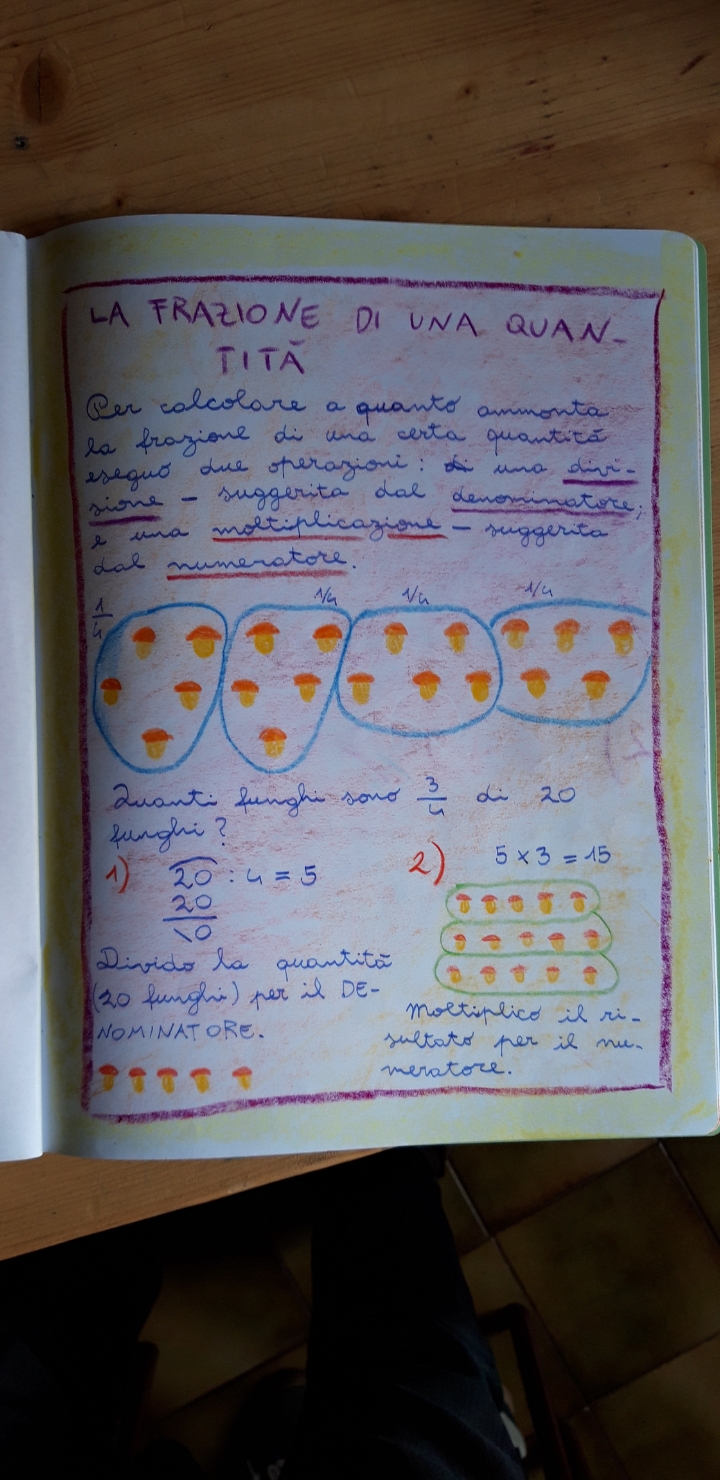 LA FRAZIONE DI UNA QUAN-
TITÀ
Per calcolare a quanto ammonta
la frazione di una certa quantità
eseguo due operazioni: di una divi-
sione - suggerita dal denominatore;
e una moltiplicazione - suggerita
dal numeratore.
1/4 1/4 1/4 1/4
Quanti funghi sono 3/4 di 20
funghi?
1) 20 : 4 = 5
20
\0
Divido la quantità
(20 funghi) per il DE-
NOMINATORE.
2) 5 x 3 = 15
Moltiplico il ri-
sultato per il nu-
meratore.